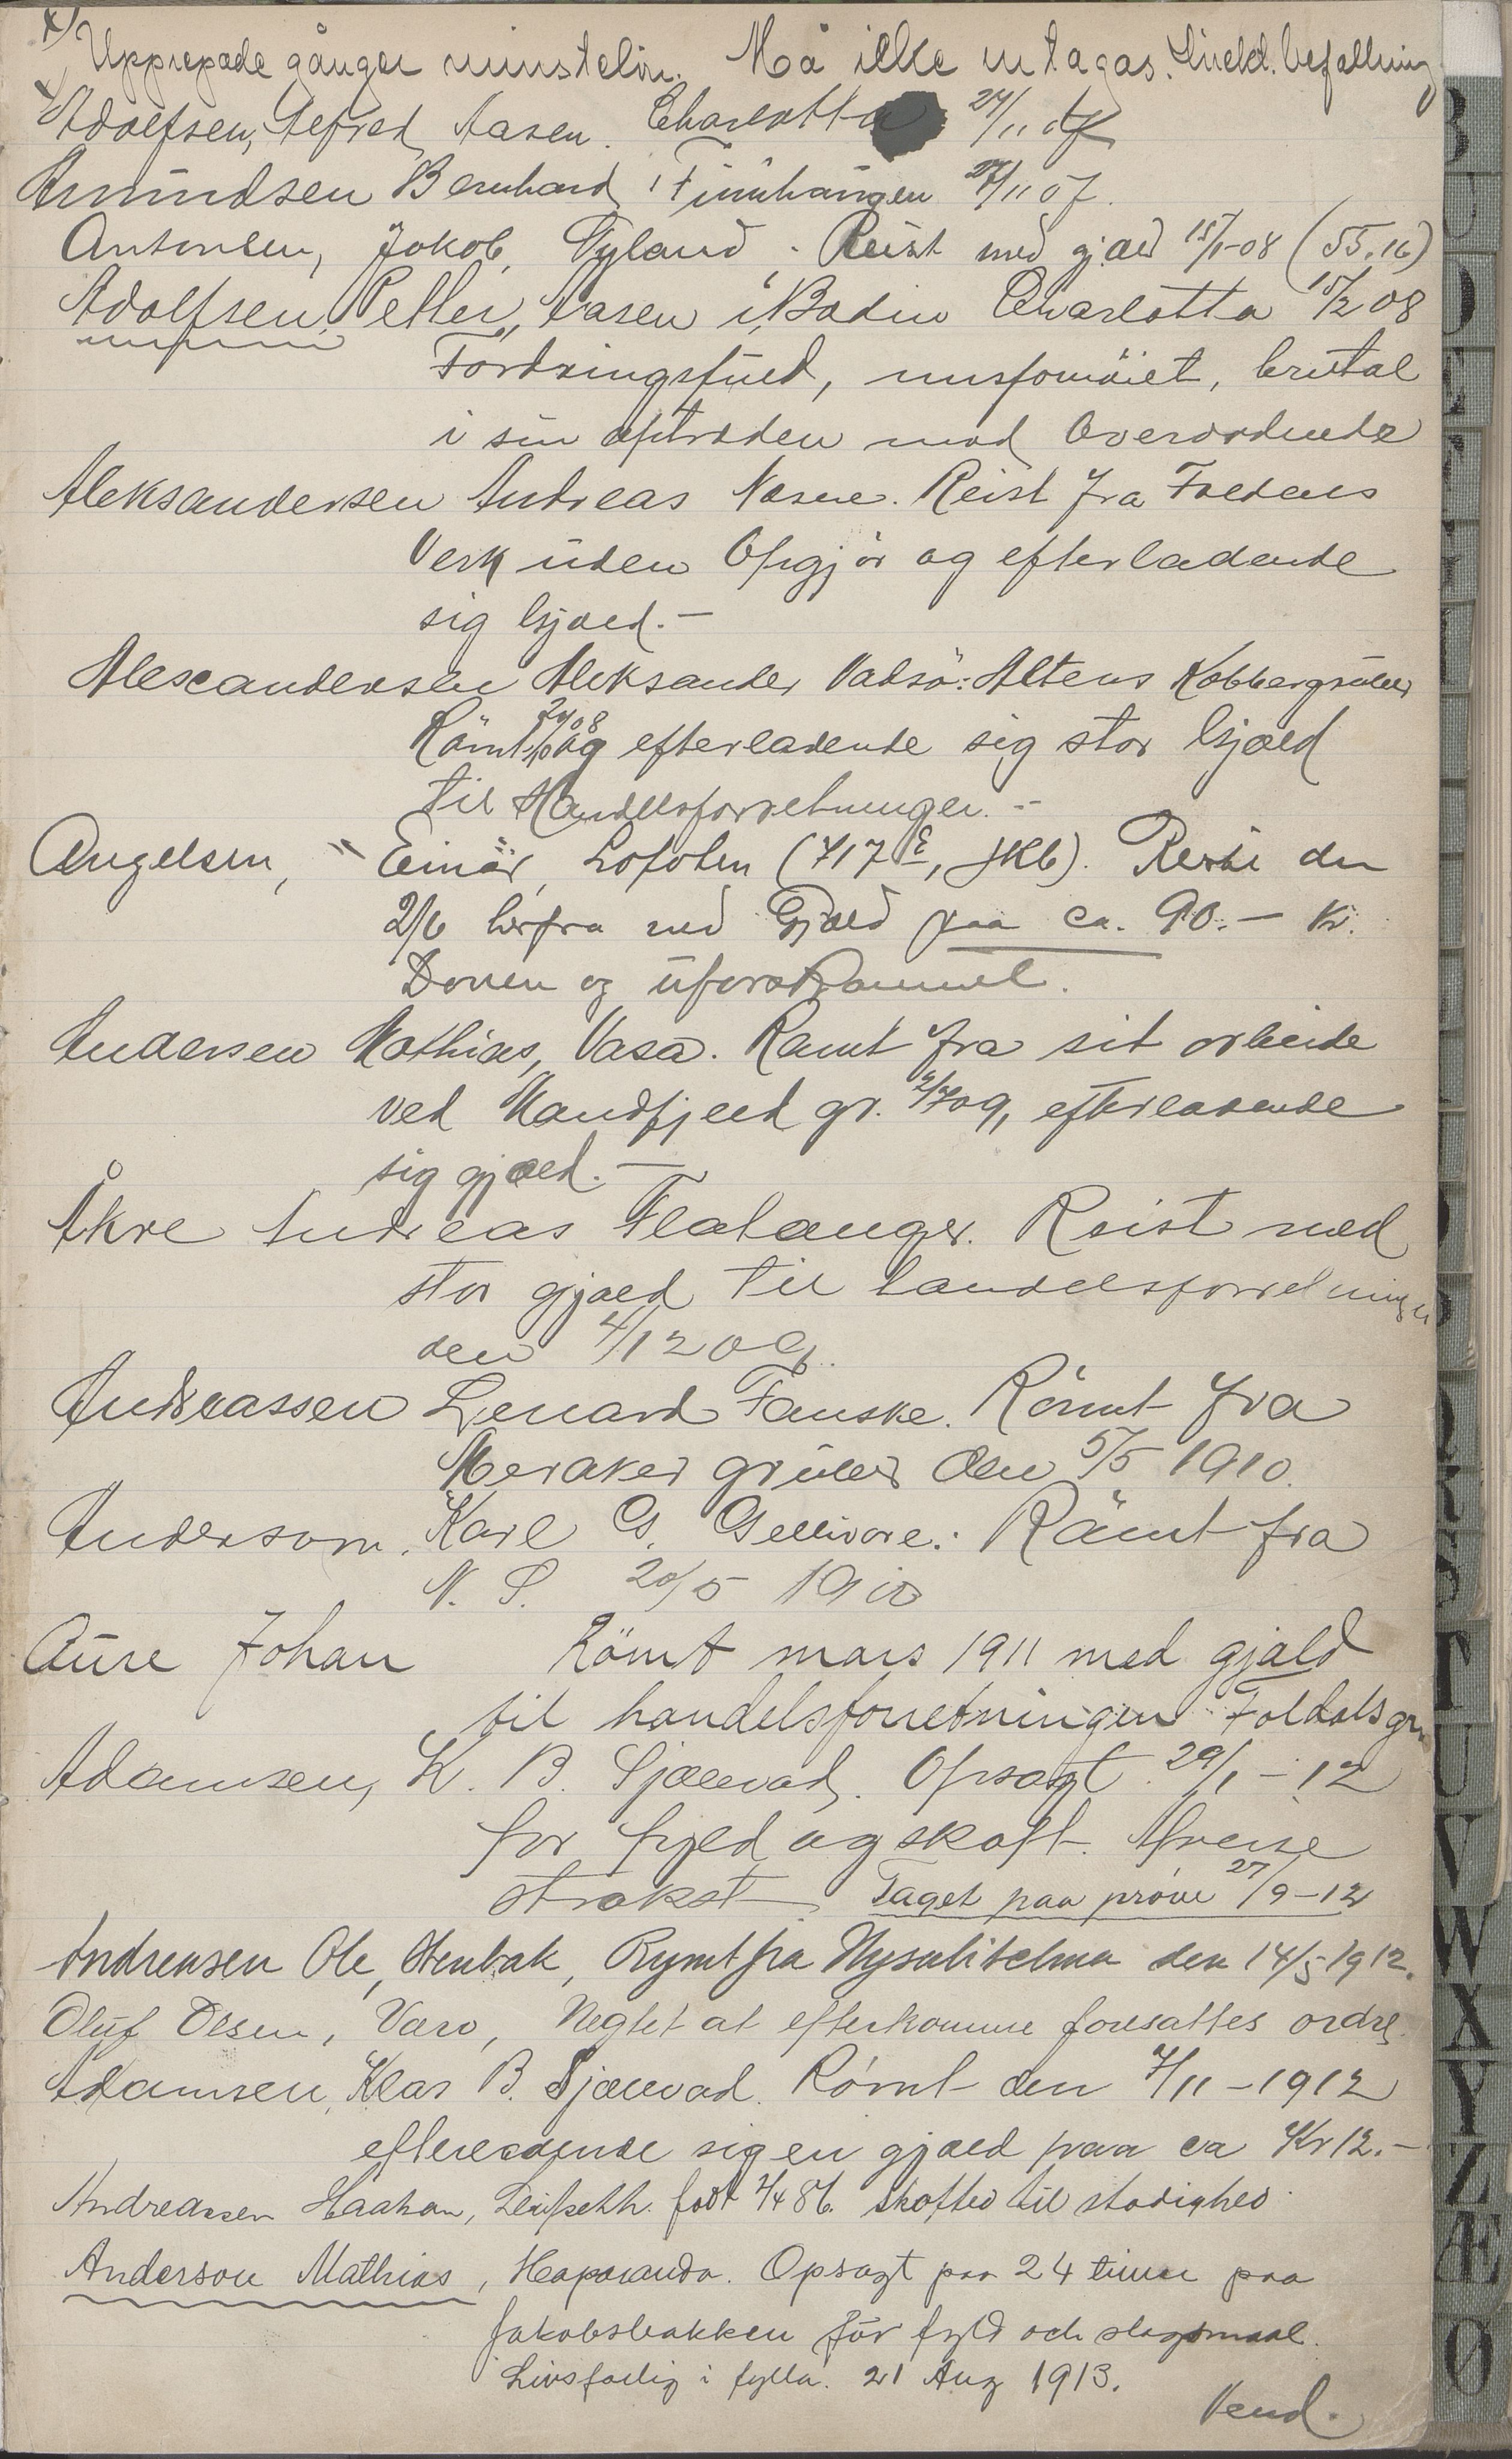 x) Upprepade gånger minstelön. Må ikke intagas. Direkt. befallning
x Adolfsen, Alfred Aasen. Charlotta 24/11 07
Amundsen Bernhard, Finnhaugen 27/11 07.
Antonsen, Jakob, Tyland. Reist med gjæld 15/1-08 (55.16)
Adolfsen, Petter, Aasen i Bodin Charlotta 15/2 08
Fordringsfuld, misfornöiet, brutal
i sin optræden mod Overordnede
Aleksandersen Andreas Næsne. Reist fra Foldens
Verk uden Opgjör og efterladende
sig gjæld.-
Alexandersen Aleksander Vadsö: Altens Kobbergruber
Römt og efterladende sig stor gjæld
til Handelsforretningen.-
Angelsen, Einar, Lofoten (717 E, JKb). Reiste den
2/6 herfra med Gjæld paa ca. 90.- Kr.
Doven og uforskammet.
Andersen Mathias, Vasa. Römt fra sit arbeide
ved Mandfjeld gr. 4/7 09, efterladende
sig gjæld.-
Åkre Andreas Flatanger. Reist med
stor gjæld til handelsforretningen
den 4/12 09.
Andreassen Lenard Fauske. Römt fra
Meraker gruber den 5/5 1910.
Anderson, Karl G. Gellivare. Römt fra
N. S. 20/5 1910
Aure Johan Römt mars 1911 med gjæld
til handelsforretningen Foldals gr.
Adamsen, K. B. Sjælevad. Opsagt 29/1-12
for fyld og skoft. Afreise
strakst. Taget paa prøve 27/9-12
Andreasen Ole, Stenbak, Rymt fra Nysulitelma den 14/5 1912.
Oluf Olsen, Værø, Negtet at efterkomme foresattes ordre.
Adamsen, Klas B. Sjælevad. Rømt den 7/11-1912
efterladende sig en gjæld paa ca Kr 12.-
Andreassen Haakon, Leifseth. født 4/4 86. skofted til stadighed.
Anderson Mathias, Haparanda. Opsagt paa 24 timer paa
Jakobsbakken för fyld och slagsmaal.
Livsfarlig i fylla. 21 Aug 1913.
Vend.